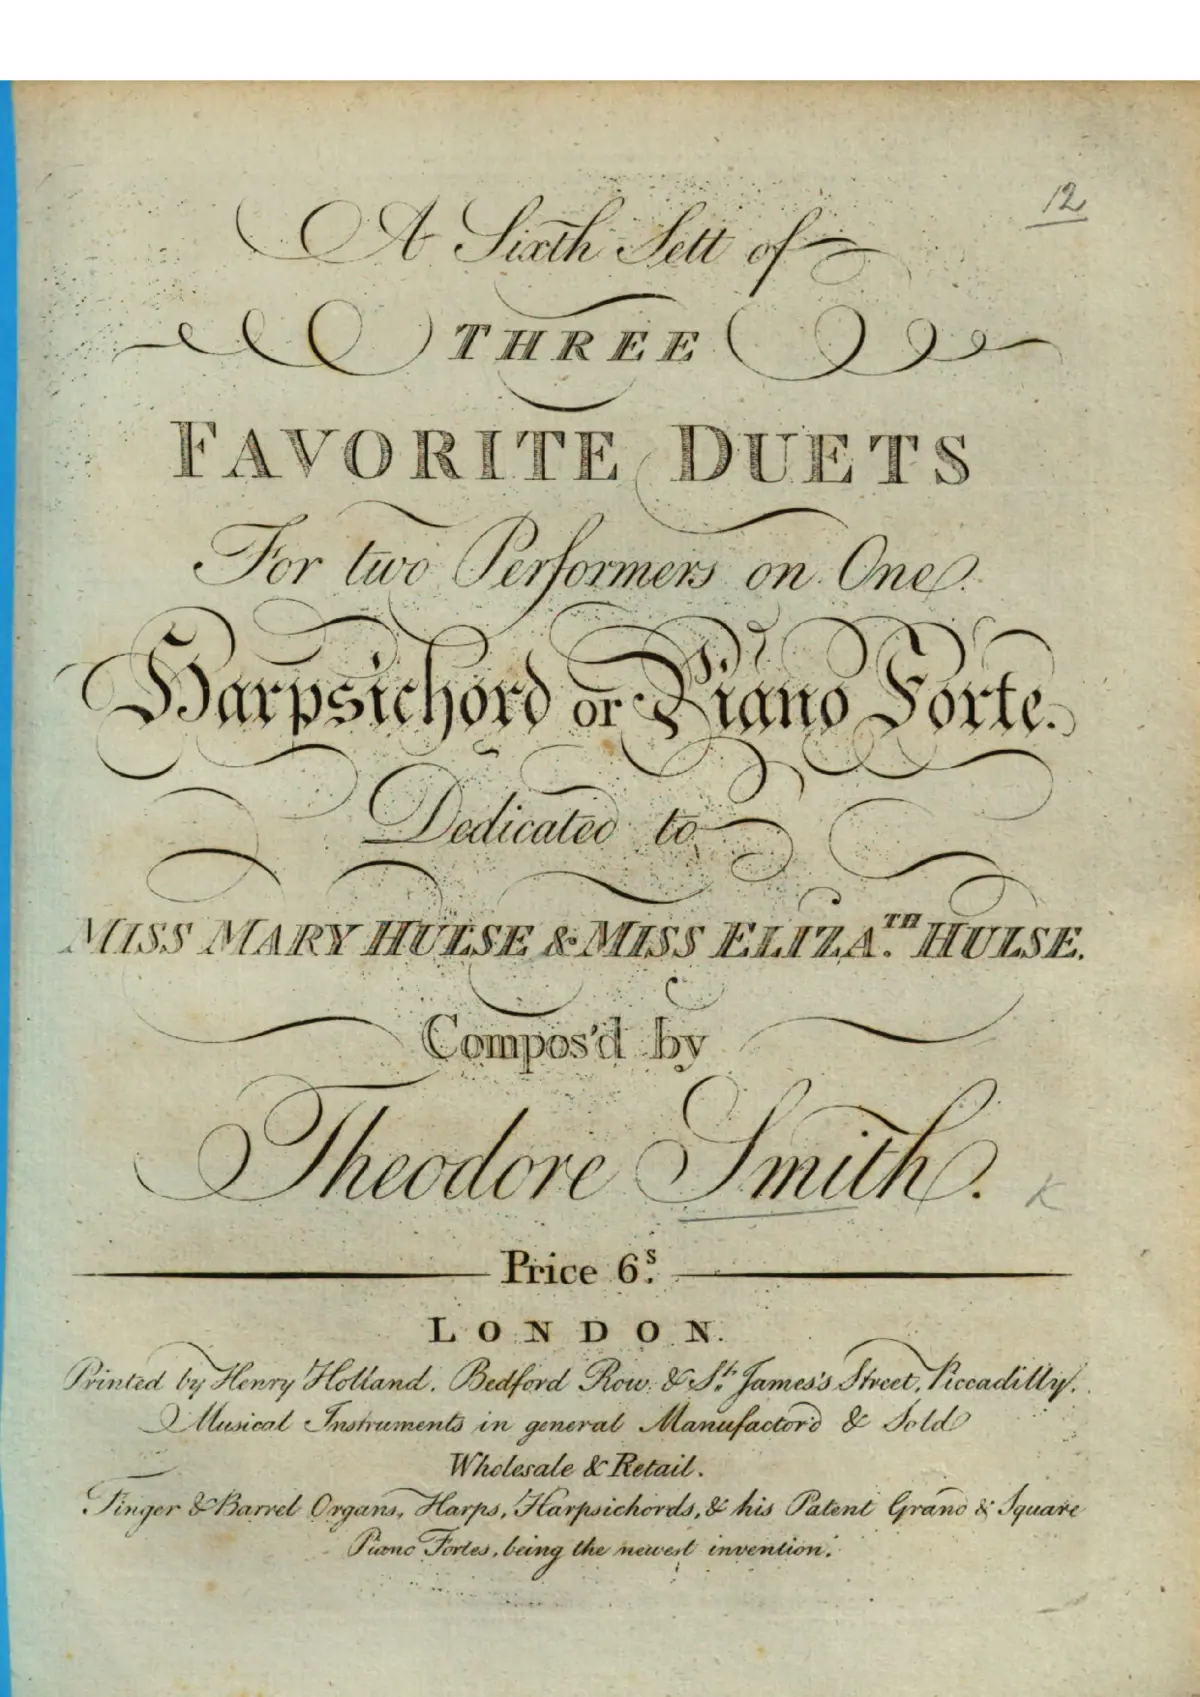 12
A Sixth Sett of
THREE
FAVORITE DUETS
For two Performers on One
Harpsichord or Piano Forte.
Dedicated to
MISS MARY HULSE & MISS ELIZA.TH HULSE.
Compos'd by
Theodore Smith.
K
Price 6.s
LONDON.
Printed by Henry Holland. Bedford Row. & St. James's Street, Piccadilly.
Musical Instruments in general Manufactor'd & Sold
Wholesale & Retail.
Finger & Barrel Organs, Harps, Harpsichords, & his Patent Grand & Square
Piano Fortes, being the newest invention.